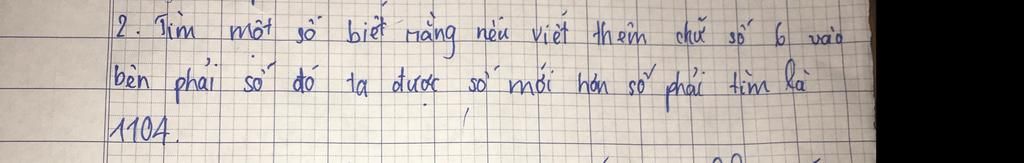 2. Tìm một số biết rằng nếu viết thêm chữ số 6 vào
bên phải số đó ta được số mới hơn số phải tìm là
1104.